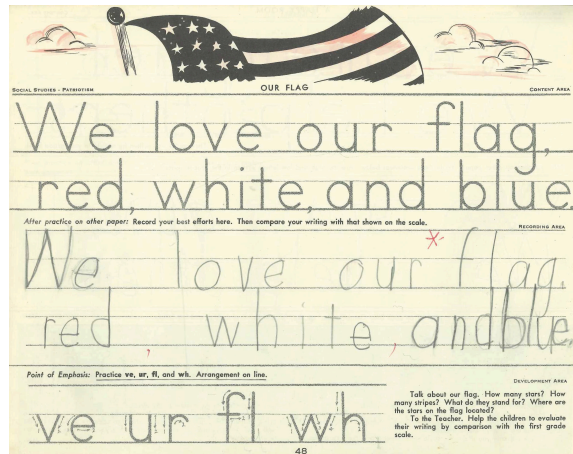 OUR FLAG
SOCIAL STUDIES - PATRIOTISM
CONTENT AREA
We love our flag,
red, white, and blue.
After practice on other paper: Record your best efforts here. Then compare your writing with that shown on the scale.
RECORDING AREA
We love our flag,
red, white, and blue.
Point of Emphasis: Practice ve, ur, fl, and wh. Arrangement on line.
DEVELOPMENT AREA
ve ur fl wh
Talk about our flag. How many stars? How
many stripes? What do they stand for? Where are
the stars on the flag located?
To the Teacher. Help the children to evaluate
their writing by comparison with the first grade
scale.
48